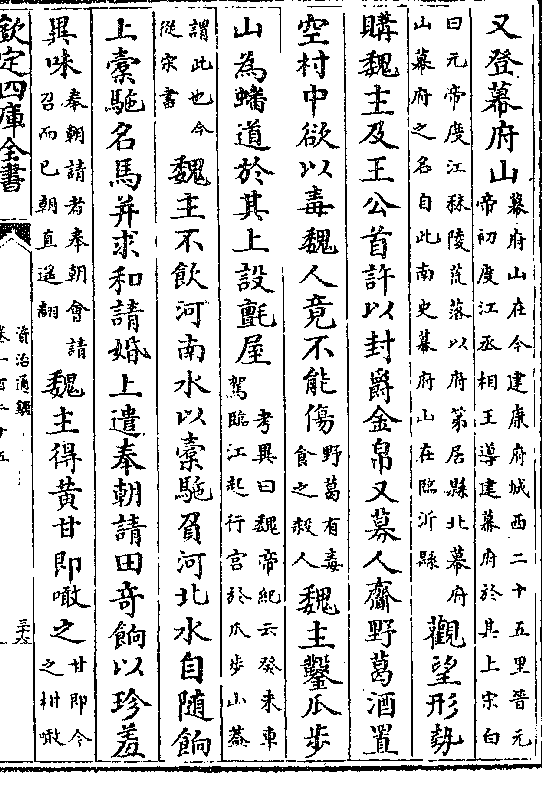 又登幕府山
幕府山在今建康府城西二十五里晉元
帝初度江丞相王導建幕府於其上宋白
曰元帝度江秣陵荒落以府第居縣北幕府
山幕府之名自此南史幕府山在臨沂縣
觀望形勢
購魏主及王公首許以封爵金帛又募人齎野葛酒置
空村中欲以毒魏人竟不能傷
野葛有毒
食之殺人
魏主鑿瓜步
山為蟠道於其上設氈屋
考異曰魏帝紀云癸未車
駕臨江起行宫於瓜步山蓋
謂此也今
從宋書
魏主不飲河南水以橐駞負河北水自隨餉
上橐駞名馬并求和請婚上遣奉朝請田奇餉以珍羞
異味
奉朝請者奉朝會請
召而已朝直遥翻
魏主得黄甘即噉之
甘即今
之柑噉
欽定四庫全書
資治通鑑
卷一百二十五